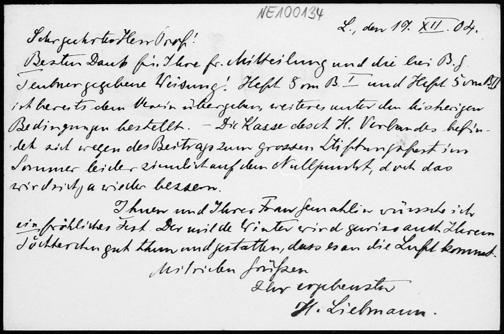 NE100134
L., den 19. XII. 04.
Sehr geehrter Herr Prof!
Besten Dank für Ihre fr. Mitteilung und die bei B.G.
Teubner gegebene Weisung! Heft 8 vom B I und Heft 5 vom B II
ich bereits dem Verein übergeben, weiteres unter den bisherigen
Bedingungen bestellt. – Die Kasse des H. Verbandes befin-
det sich wegen des Beitrags zum grossen Stiftungsfest im
Sommer leider ziemlich auf dem Nullpunkt, doch das
wird sich ja wieder bessern.
Ihnen und Ihrer Frau Gemahlin wünsche ich
ein fröhliches Fest. Der milde Winter wird gewiss auch Ihrem
Töchterchen gut thun und gestatten, dass es an die Luft kommt.
Mit vielen Grüßen
Ihr ergebenster
H. Liebmann.